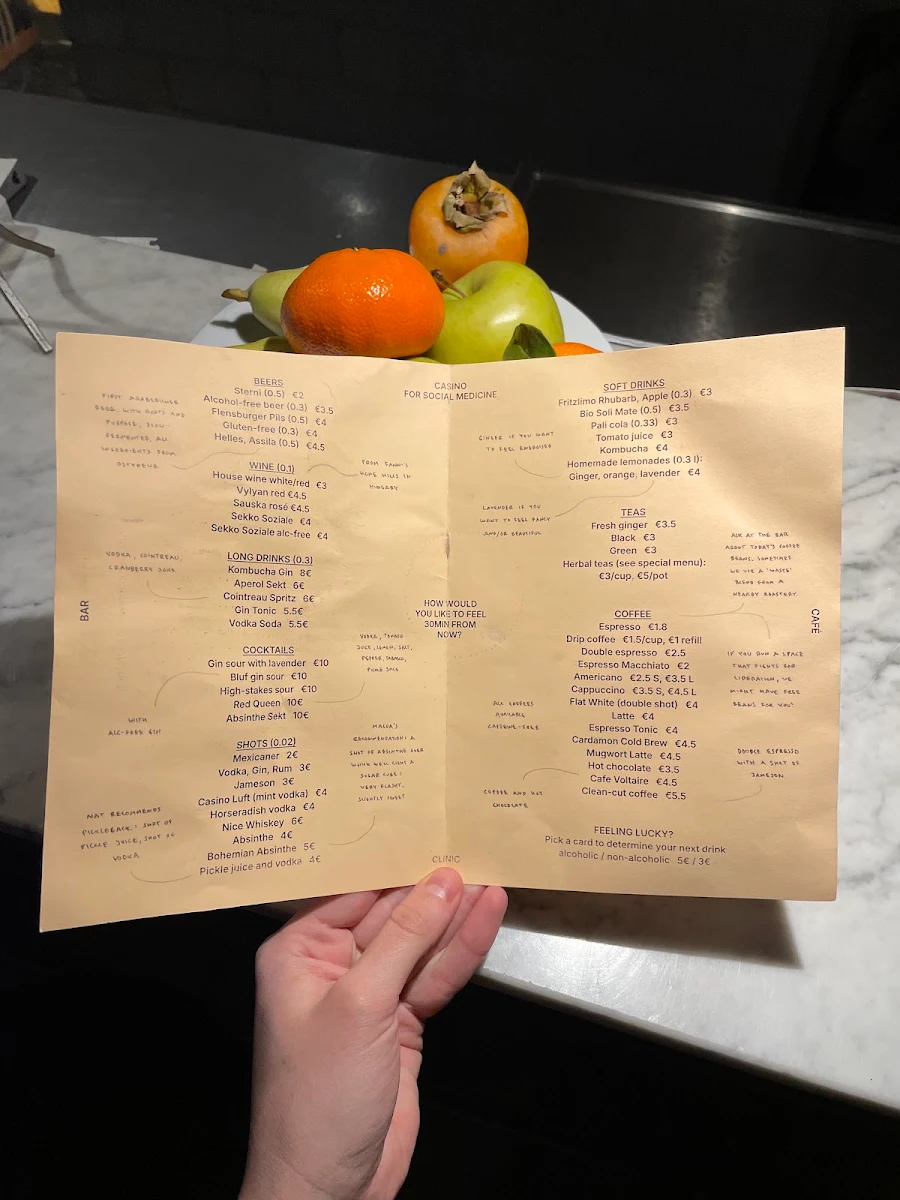 CASINO
FOR SOCIAL MEDICINE
BAR
BEERS
Sterni (0.5) €2
Alcohol-free beer (0.3) €3.5
Flensburger Pils (0.5) €4
Gluten-free (0.3) €4
Helles, Assila (0.5) €4.5
WINE (0.1)
House wine white/red €3
Vylyan red €4.5
Sauska rosé €4.5
Sekko Soziale €4
Sekko Soziale alc-free €4
FROM FANNY'S
HOME HILLS IN
HUNGARY
LONG DRINKS (0.3)
Kombucha Gin 8€
Aperol Sekt 6€
Cointreau Spritz 6€
Gin Tonic 5.5€
Vodka Soda 5.5€
VODKA, COINTREAU,
CRANBERRY
COCKTAILS
Gin sour with lavender €10
Bluf gin sour €10
High-stakes sour €10
Red Queen 10€
Absinthe Sekt 10€
WITH
ALC-FREE GIN
VODKA, TOMATO
JUICE, LEMON, SALT,
PEPPER, TABASCO,
SHOTS (0.02)
Mexicaner 2€
Vodka, Gin, Rum 3€
Jameson 3€
Casino Luft (mint vodka) €4
Horseradish vodka €4
Nice Whiskey 6€
Absinthe 4€
Bohemian Absinthe 5€
Pickle juice and vodka 4€
RECOMMENDATION: A
SHOT OF ABSINTHE OVER
SUGAR CUBE!
VERY FLASHY,
SLIGHTLY SWEET
NAT RECOMMENDS
PICKLEBACK: SHOT OF
PICKLE JUICE, SHOT OF
VODKA
HOW WOULD
YOU LIKE TO FEEL
30MIN FROM
NOW?
CLINIC
SOFT DRINKS
Fritzlimo Rhubarb, Apple (0.3) €3
Bio Soli Mate (0.5) €3.5
Pali cola (0.33) €3
Tomato juice €3
Kombucha €4
Homemade lemonades (0.3 l):
Ginger, orange, lavender €4
GINGER IF YOU WANT
TO FEEL ENERGISED
LAVENDER IF YOU
WANT TO FEEL FANCY
AND/OR BEAUTIFUL
TEAS
Fresh ginger €3.5
Black €3
Green €3
Herbal teas (see special menu):
€3/cup, €5/pot
ASK AT THE BAR
ABOUT TODAY'S COFFEE
BEANS, SOMETIMES
WE USE A 'WASTE'
BLEND FROM A
NEARBY ROASTERY.
COFFEE
Espresso €1.8
Drip coffee €1.5/cup, €1 refill
Double espresso €2.5
Espresso Macchiato €2
Americano €2.5 S, €3.5 L
Cappuccino €3.5 S, €4.5 L
Flat White (double shot) €4
Latte €4
Espresso Tonic €4
Cardamon Cold Brew €4.5
Mugwort Latte €4.5
Hot chocolate €3.5
Cafe Voltaire €4.5
Clean-cut coffee €5.5
IF YOU RUN A SPACE
THAT FIGHTS FOR
LIBERATION, WE
MIGHT HAVE FREE
BEANS FOR YOU!
ALL COFFEES
AVAILABLE
CAFFEINE-FREE
COFFEE AND HOT
CHOCOLATE
DOUBLE ESPRESSO
WITH A SHOT OF
JAMESON
FEELING LUCKY?
Pick a card to determine your next drink
alcoholic / non-alcoholic 5€ / 3€
CAFÉ